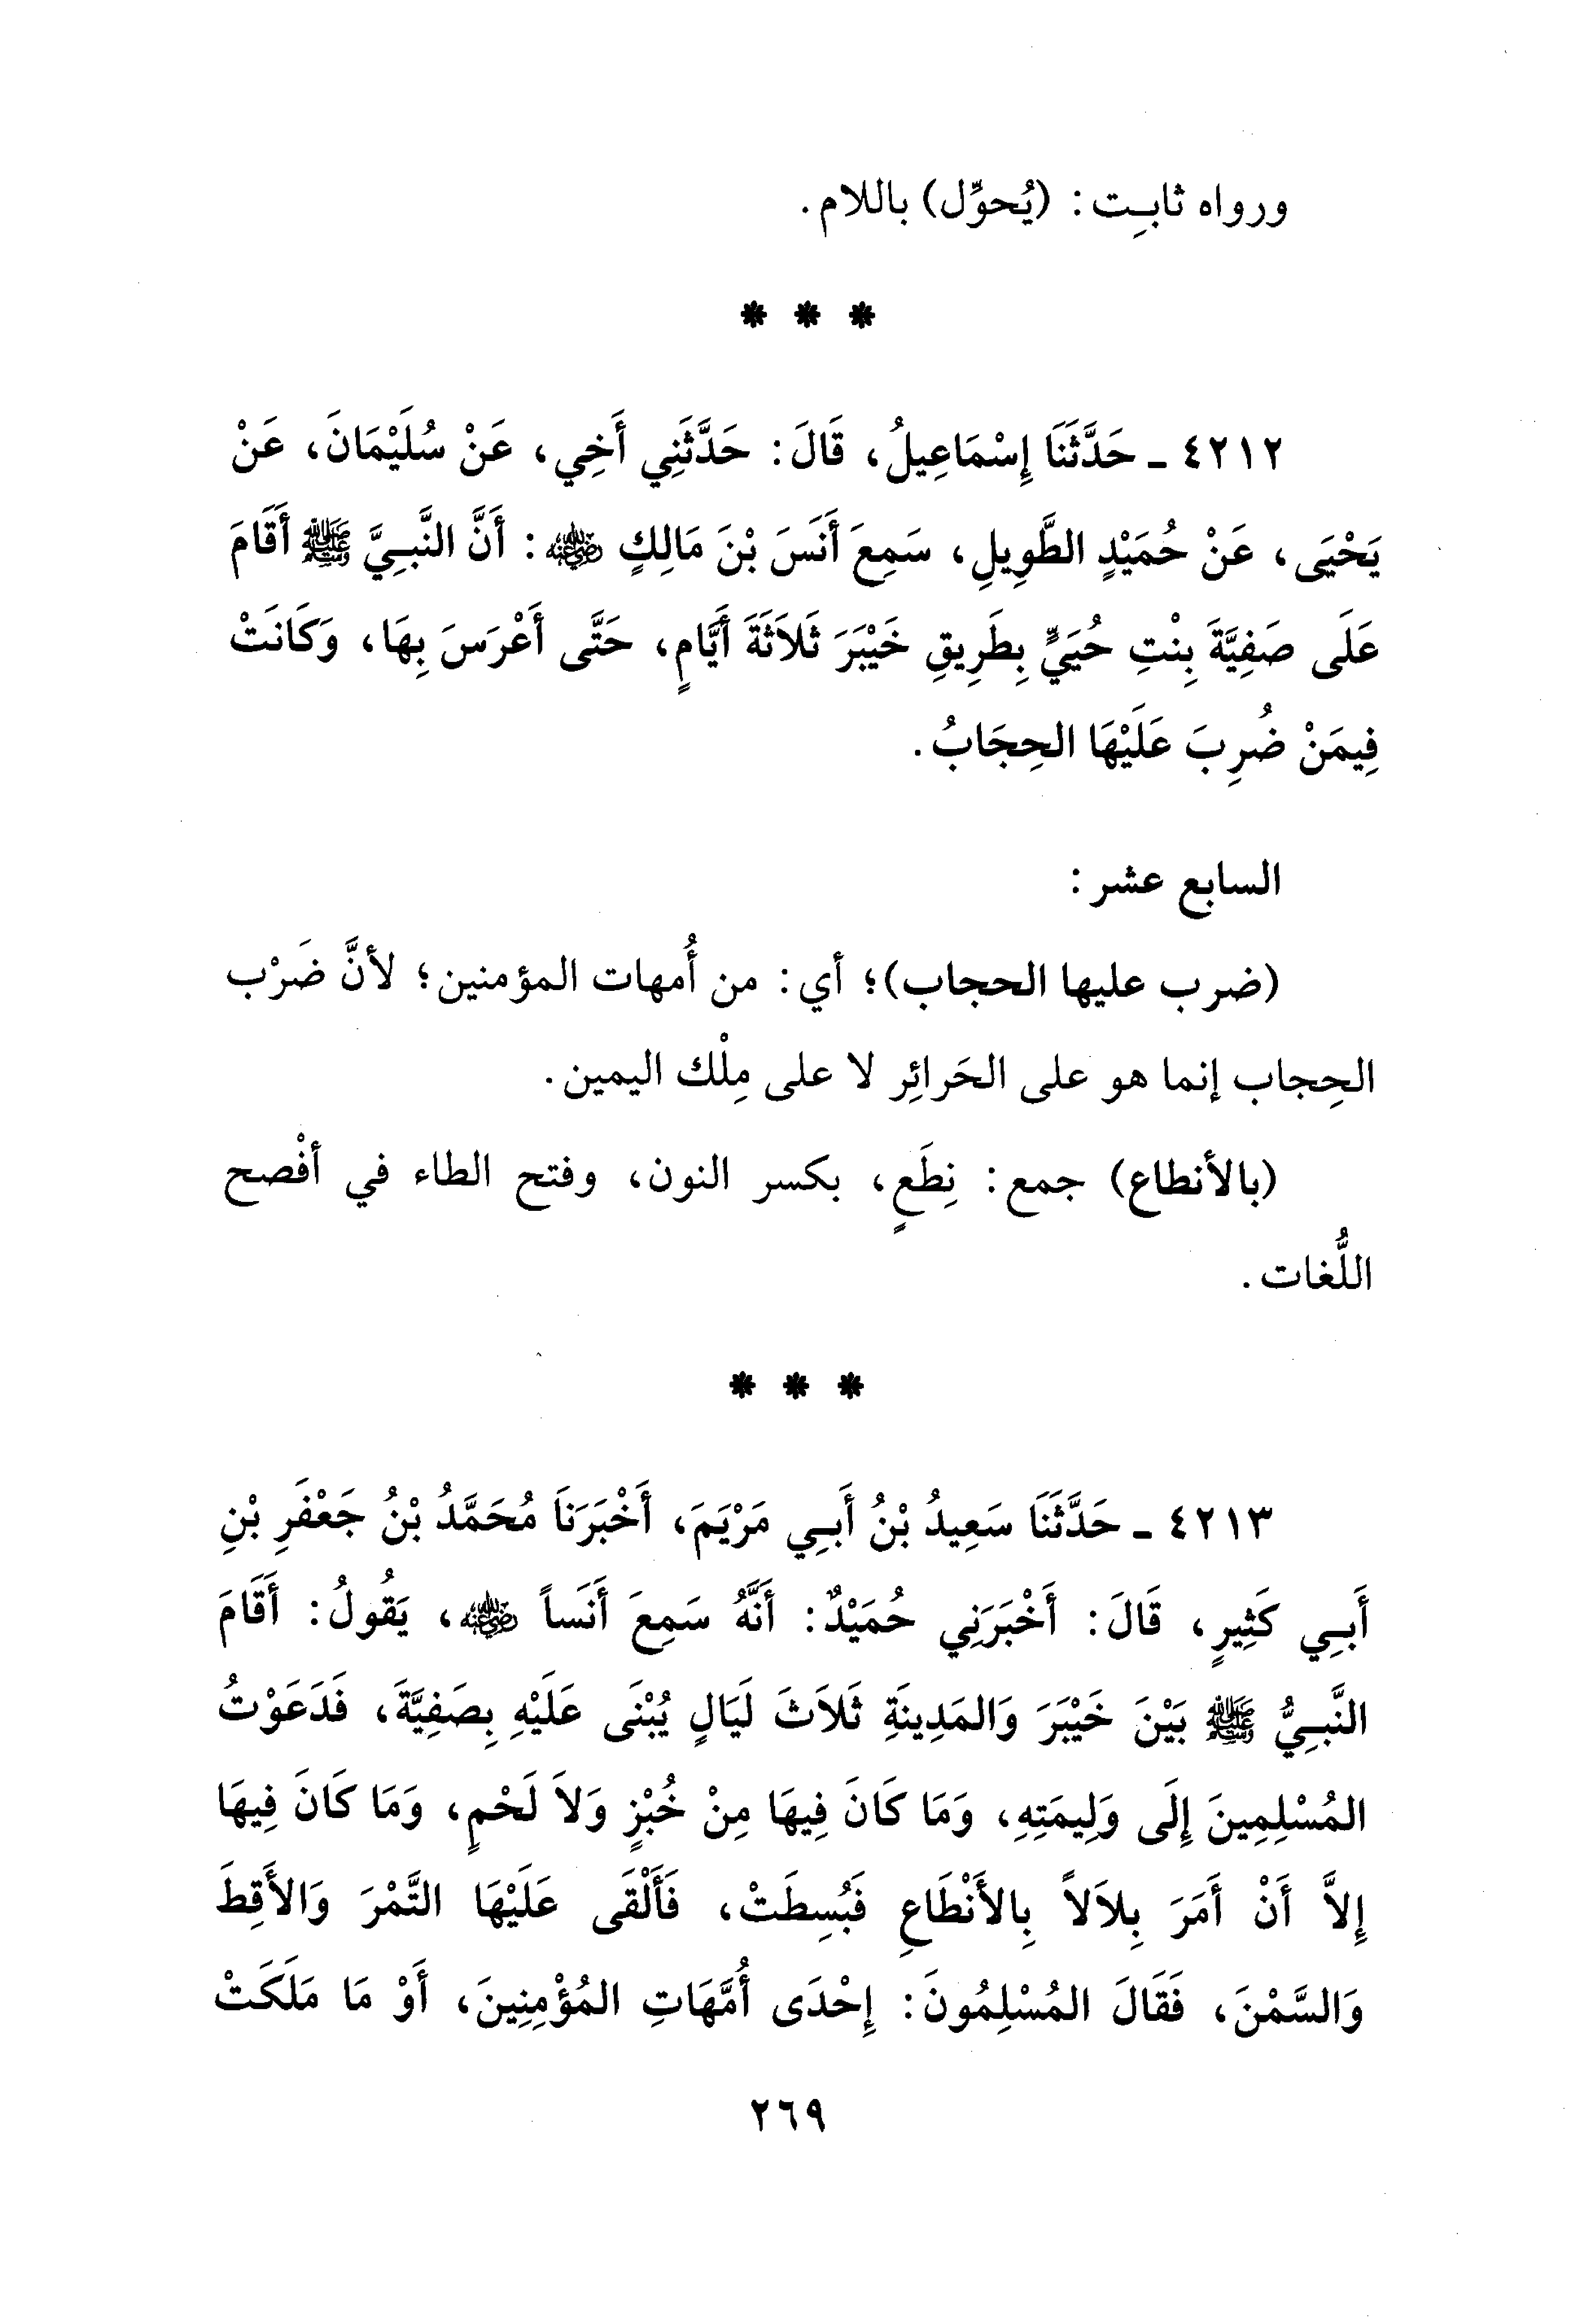 ورواه ثابِت: (يُحوِّل) باللام.
* * *
٤٢١٢ ـ حَدَّثَنَا إِسْمَاعِيلُ، قَالَ: حَدَّثَنِي أَخِي، عَنْ سُلَيْمَانَ، عَنْ
يَحْيَى، عَنْ حُمَيْدٍ الطَّوِيلِ، سَمِعَ أَنَسَ بْنَ مَالِكٍ رضي الله عنه: أَنَّ النَّبِيَّ ﷺ أَقَامَ
عَلَى صَفِيَّةَ بِنْتِ حُيَيٍّ بِطَرِيقِ خَيْبَرَ ثَلاَثَةَ أَيَّامٍ، حَتَّى أَعْرَسَ بِهَا، وَكَانَتْ
فِيمَنْ ضُرِبَ عَلَيْهَا الحِجَابُ.
السابع عشر:
(ضرب عليها الحجاب)؛ أي: من أُمهات المؤمنين؛ لأنَّ ضَرْب
الحِجاب إنما هو على الحَرائِر لا على مِلْك اليمين.
(بالأنطاع) جمع: نِطَعٍ، بكسر النون، وفتح الطاء في أفْصح
اللُّغات.
* * *
٤٢١٣ ـ حَدَّثَنَا سَعِيدُ بْنُ أَبِي مَرْيَمَ، أَخْبَرَنَا مُحَمَّدُ بْنُ جَعْفَرِ بْنِ
أَبِي كَثِيرٍ، قَالَ: أَخْبَرَنِي حُمَيْدٌ: أَنَّهُ سَمِعَ أَنَساً رضي الله عنه، يَقُولُ: أَقَامَ
النَّبِيُّ ﷺ بَيْنَ خَيْبَرَ وَالمَدِينَةِ ثَلاَثَ لَيَالٍ يُبْنَى عَلَيْهِ بِصَفِيَّةَ، فَدَعَوْتُ
المُسْلِمِينَ إِلَى وَلِيمَتِهِ، وَمَا كَانَ فِيهَا مِنْ خُبْزٍ وَلاَ لَحْمٍ، وَمَا كَانَ فِيهَا
إِلاَّ أَنْ أَمَرَ بِلاَلاً بِالأَنْطَاعِ فَبُسِطَتْ، فَأَلْقَى عَلَيْهَا التَّمْرَ وَالأَقِطَ
وَالسَّمْنَ، فَقَالَ المُسْلِمُونَ: إِحْدَى أُمَّهَاتِ المُؤْمِنِينَ، أَوْ مَا مَلَكَتْ
٢٦٩